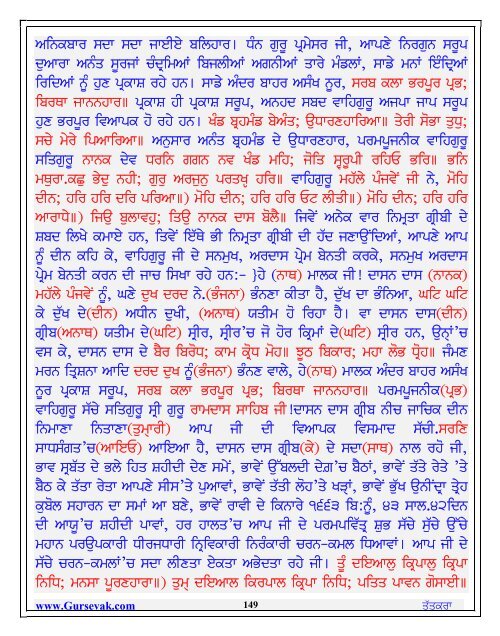 ਅਨਿਕਬਾਰ ਸਦਾ ਸਦਾ ਜਾਈਏ ਬਲਿਹਾਰ। ਧੰਨ ਗੁਰੂ ਪ੍ਰਮੇਸਰ ਜੀ, ਆਪਣੇ ਨਿਰਗੁਨ ਸਰੂਪ
ਦੁਆਰਾ ਅਨੰਤ ਸੂਰਜਾਂ ਚੰਦ੍ਰਮਿਆਂ ਬਿਜਲੀਆਂ ਅਗਨੀਆਂ ਤਾਰੇ ਮੰਡਲਾਂ, ਸਾਡੇ ਮਨਾਂ ਇੰਦ੍ਰਿਆਂ
ਰਿਦਿਆਂ ਨੂੰ ਹੁਣ ਪ੍ਰਕਾਸ਼ ਰਹੇ ਹਨ। ਸਾਡੇ ਅੰਦਰ ਬਾਹਰ ਅਸੰਖ ਨੂਰ, ਸਰਬ ਕਲਾ ਭਰਪੂਰ ਪ੍ਰਭ;
ਬਿਰਥਾ ਜਾਨਨਹਾਰ॥ ਪ੍ਰਕਾਸ਼ ਹੀ ਪ੍ਰਕਾਸ਼ ਸਰੂਪ, ਅਨਹਦ ਸਬਦ ਵਾਹਿਗੁਰੂ ਅਜਪਾ ਜਾਪ ਸਰੂਪ
ਹੁਣ ਭਰਪੂਰ ਵਿਆਪਕ ਹੋ ਰਹੇ ਹਨ। ਖੰਡ ਬ੍ਰਹਮੰਡ ਬੇਅੰਤ; ਉਧਾਰਣਹਾਰਿਆ॥ ਤੇਰੀ ਸੋਭਾ ਤੁਧੁ;
ਸਚੇ ਮੇਰੇ ਪਿਆਰਿਆ॥ ਅਨੁਸਾਰ ਅਨੰਤ ਬ੍ਰਹਮੰਡ ਦੇ ਉਧਾਰਣਹਾਰ, ਪਰਮਪੂਜਨੀਕ ਵਾਹਿਗੁਰੂ
ਸਤਿਗੁਰੂ ਨਾਨਕ ਦੇਵ ਧਰਨਿ ਗਗਨ ਨਵ ਖੰਡ ਮਹਿ; ਜੋਤਿ ਸ੍ਵਰੂਪੀ ਰਹਿਓ ਭਰਿ॥ ਭਨਿ
ਮਥੁਰਾ.ਕਛੁ ਭੇਦੁ ਨਹੀ; ਗੁਰੁ ਅਰਜੁਨੁ ਪਰਤਖ੍ਹ ਹਰਿ॥ ਵਾਹਿਗੁਰੂ ਮਹੱਲੇ ਪੰਜਵੇਂ ਜੀ ਨੇ, ਮੋਹਿ
ਦੀਨ; ਹਰਿ ਹਰਿ ਦਰਿ ਪਰਿਆ॥) ਮੋਹਿ ਦੀਨ; ਹਰਿ ਹਰਿ ਓਟ ਲੀਤੀ॥) ਮੋਹਿ ਦੀਨ; ਹਰਿ ਹਰਿ
ਆਰਾਧੇ॥) ਜਿਉ ਬੁਲਾਵਹੁ; ਤਿਉ ਨਾਨਕ ਦਾਸ ਬੋਲੈ॥ ਜਿਵੇਂ ਅਨੇਕ ਵਾਰ ਨਿਮ੍ਰਤਾ ਗ੍ਰੀਬੀ ਦੇ
ਸ਼ਬਦ ਲਿਖੇ ਕਮਾਏ ਹਨ, ਤਿਵੇਂ ਇੱਥੇ ਭੀ ਨਿਮ੍ਰਤਾ ਗ੍ਰੀਬੀ ਦੀ ਹੱਦ ਜਣਾਉਂਦਿਆਂ, ਆਪਣੇ ਆਪ
ਨੂੰ ਦੀਨ ਕਹਿ ਕੇ, ਵਾਹਿਗੁਰੂ ਜੀ ਦੇ ਸਨਮੁਖ, ਅਰਦਾਸ ਪ੍ਰੇਮ ਬੇਨਤੀ ਕਰਕੇ, ਸਨਮੁਖ ਅਰਦਾਸ
ਪ੍ਰੇਮ ਬੇਨਤੀ ਕਰਨ ਦੀ ਜਾਚ ਸਿਖਾ ਰਹੇ ਹਨ:- }ਹੇ (ਨਾਥ) ਮਾਲਕ ਜੀ! ਦਾਸਨ ਦਾਸ (ਨਾਨਕ)
ਮਹੱਲੇ ਪੰਜਵੇਂ ਨੂੰ, ਘਣੇ ਦੁਖ ਦਰਦ ਨੇ.(ਭੰਜਨਾ) ਭੰਨਣਾ ਕੀਤਾ ਹੈ, ਦੁੱਖ ਦਾ ਭੰਨਿਆ, ਘਟਿ ਘਟਿ
ਕੇ ਦੁੱਖ ਦੇ(ਦੀਨ) ਅਧੀਨ ਦੁਖੀ, (ਅਨਾਥ) ਯਤੀਮ ਹੋ ਰਿਹਾ ਹੈ। ਵਾ ਦਾਸਨ ਦਾਸ(ਦੀਨ)
ਗ੍ਰੀਬ(ਅਨਾਥ) ਯਤੀਮ ਦੇ(ਘਟਿ) ਸ੍ਰੀਰ, ਸ੍ਰੀਰ'ਚ ਜੋ ਹੋਰ ਕ੍ਰਿਮਾਂ ਦੇ(ਘਟਿ) ਸ੍ਰੀਰ ਹਨ, ਉਨ੍ਹਾਂ'ਚ
ਵਸ ਕੇ, ਦਾਸਨ ਦਾਸ ਦੇ ਬੈਰ ਬਿਰੋਧ; ਕਾਮ ਕ੍ਰੋਧ ਮੋਹ॥ ਝੂਠ ਬਿਕਾਰ; ਮਹਾ ਲੋਭ ਧ੍ਰੋਹ॥ ਜੰਮਣ
ਮਰਨ ਤ੍ਰਿਸ਼ਨਾ ਆਦਿ ਦਰਦ ਦੁਖ ਨੂੰ(ਭੰਜਨਾ) ਭੰਨਣ ਵਾਲੇ, ਹੇ(ਨਾਥ) ਮਾਲਕ ਅੰਦਰ ਬਾਹਰ ਅਸੰਖ
ਨੂਰ ਪ੍ਰਕਾਸ਼ ਸਰੂਪ, ਸਰਬ ਕਲਾ ਭਰਪੂਰ ਪ੍ਰਭ; ਬਿਰਥਾ ਜਾਨਨਹਾਰ॥ ਪਰਮਪੂਜਨੀਕ(ਪ੍ਰਭ)
ਵਾਹਿਗੁਰੂ ਸੱਚੇ ਸਤਿਗੁਰੂ ਸ੍ਰੀ ਗੁਰੂ ਰਾਮਦਾਸ ਸਾਹਿਬ ਜੀ !ਦਾਸਨ ਦਾਸ ਗ੍ਰੀਬ ਨੀਚ ਜਾਚਿਕ ਦੀਨ
ਨਿਮਾਣਾ ਨਿਤਾਣਾ(ਤੁਮ੍ਹਾਰੀ) ਆਪ ਜੀ ਦੀ ਵਿਆਪਕ ਵਿਸਮਾਦ ਸੱਚੀ.ਸਰਣਿ
ਸਾਧਸੰਗਤ'ਚ(ਆਇਓ) ਆਇਆ ਹੈ, ਦਾਸਨ ਦਾਸ ਗ੍ਰੀਬ(ਕੇ) ਦੇ ਸਦਾ(ਸਾਥ) ਨਾਲ ਰਹੋ ਜੀ,
ਭਾਵ ਸ੍ਰਬੱਤ ਦੇ ਭਲੇ ਹਿਤ ਸ਼ਹੀਦੀ ਦੇਣ ਸਮੇਂ, ਭਾਵੇਂ ਉੱਬਲਦੀ ਦੇਗ਼'ਚ ਬੈਠਾਂ, ਭਾਵੇਂ ਤੱਤੇ ਰੇਤੇ 'ਤੇ
ਬੈਠ ਕੇ ਤੱਤਾ ਰੇਤਾ ਆਪਣੇ ਸੀਸ'ਤੇ ਪੁਆਵਾਂ, ਭਾਵੇਂ ਤੱਤੀ ਲੋਹ'ਤੇ ਖੜ੍ਹਾਂ, ਭਾਵੇਂ ਭੁੱਖ ਉਨੀਂਦ੍ਰਾ ਤ੍ਰੇਹ
ਕੁਬੋਲ ਸਹਾਰਨ ਦਾ ਸਮਾਂ ਆ ਬਣੇ, ਭਾਵੇਂ ਰਾਵੀ ਦੇ ਕਿਨਾਰੇ ੧੬੬੩ ਬਿ:ਨੂੰ, ੪੩ ਸਾਲ.੪੨ਦਿਨ
ਦੀ ਆਯੂ'ਚ ਸ਼ਹੀਦੀ ਪਾਵਾਂ, ਹਰ ਹਾਲਤ'ਚ ਆਪ ਜੀ ਦੇ ਪਰਮਪਵਿੱਤ੍ਰ ਸ਼ੁਭ ਸੱਚੇ ਸੁੱਚੇ ਉੱਚੇ
ਮਹਾਨ ਪਰਉਪਕਾਰੀ ਧੀਰਜਧਾਰੀ ਨ੍ਰਿਵਿਕਾਰੀ ਨਿਰੰਕਾਰੀ ਚਰਨ-ਕਮਲ ਧਿਆਵਾਂ। ਆਪ ਜੀ ਦੇ
ਸੱਚੇ ਚਰਨ-ਕਮਲਾਂ'ਚ ਸਦਾ ਲੀਣਤਾ ਏਕਤਾ ਅਭੇਦਤਾ ਰਹੇ ਜੀ। ਤੂੰ ਦਇਆਲੁ ਕ੍ਰਿਪਾਲੁ ਕ੍ਰਿਪਾ
ਨਿਧਿ; ਮਨਸਾ ਪੂਰਣਹਾਰਾ॥) ਤੁਮ੍ਹ ਦਇਆਲ ਕਿਰਪਾਲ ਕ੍ਰਿਪਾ ਨਿਧਿ; ਪਤਿਤ ਪਾਵਨ ਗੋਸਾਈ॥
www.Gursevak.com 149 ਤੱਤਕਰਾ